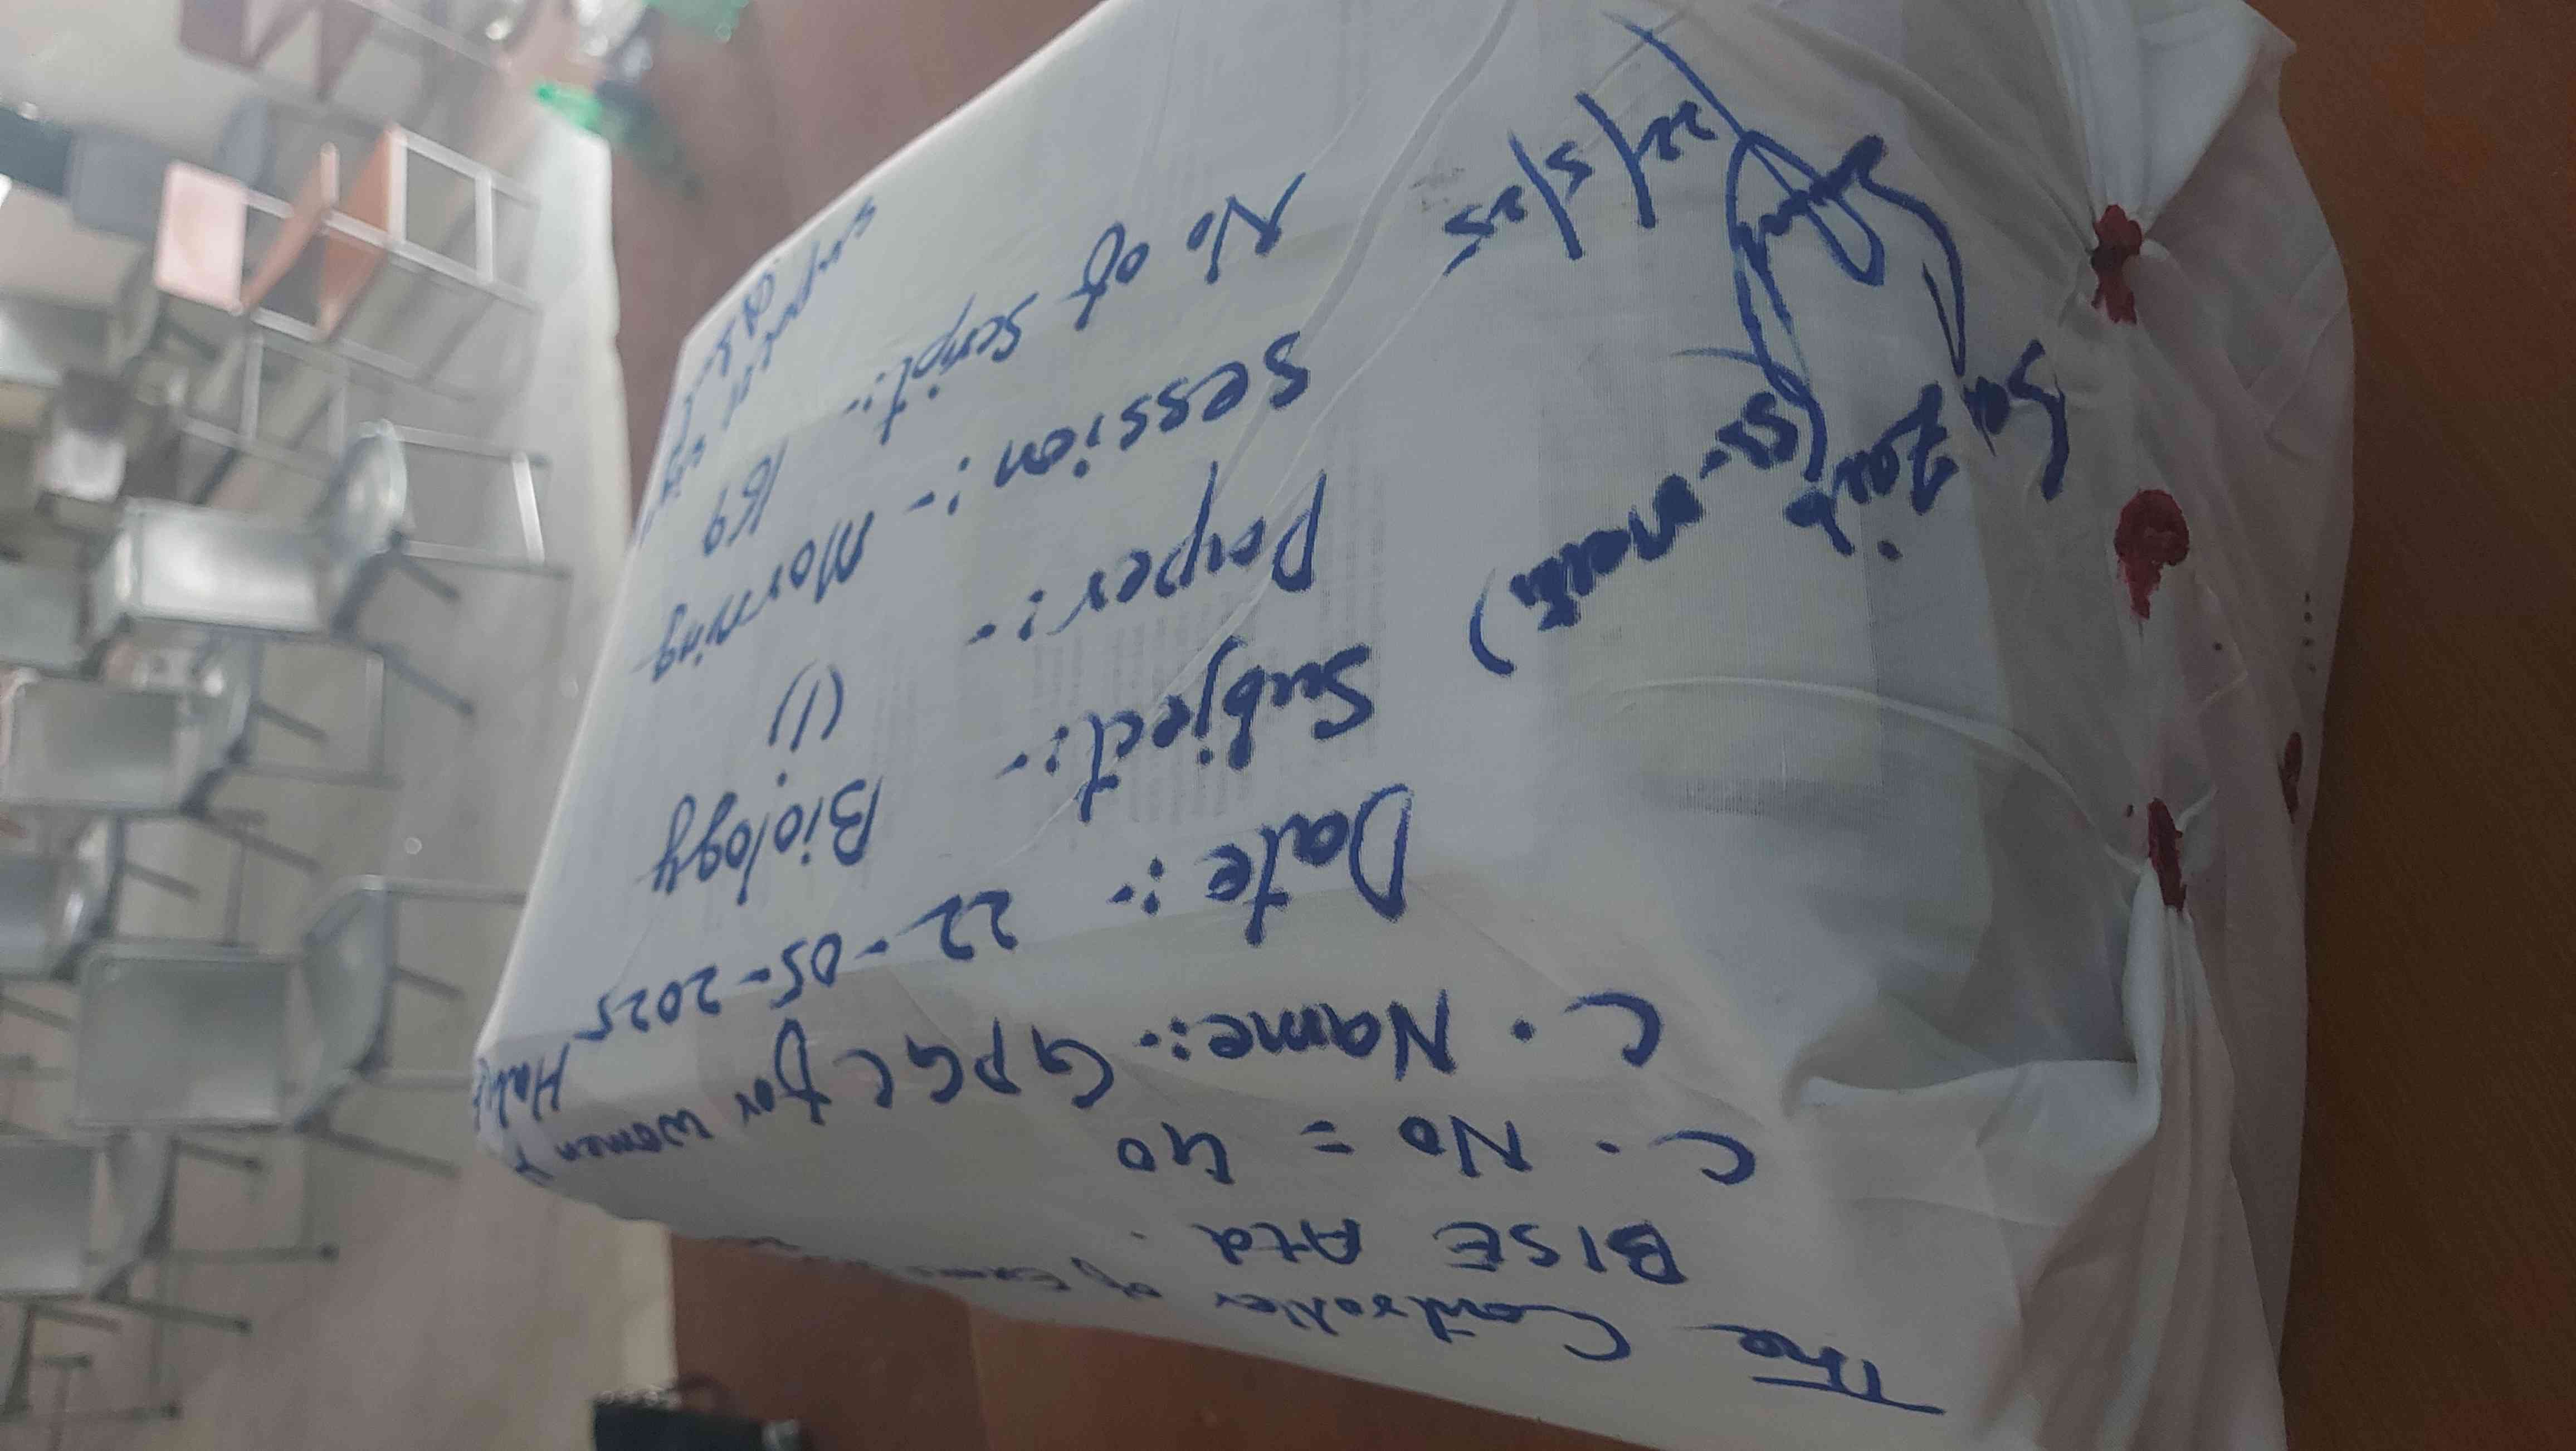 The Controller of
BISE Atd.
C. No = 40
C. Name:- GPGC for women
Date:- 22-05-2025
Subject:- Biology
Paper:- (1)
Session:- Morning
No of Script:- 169
22/5/25
Zaib